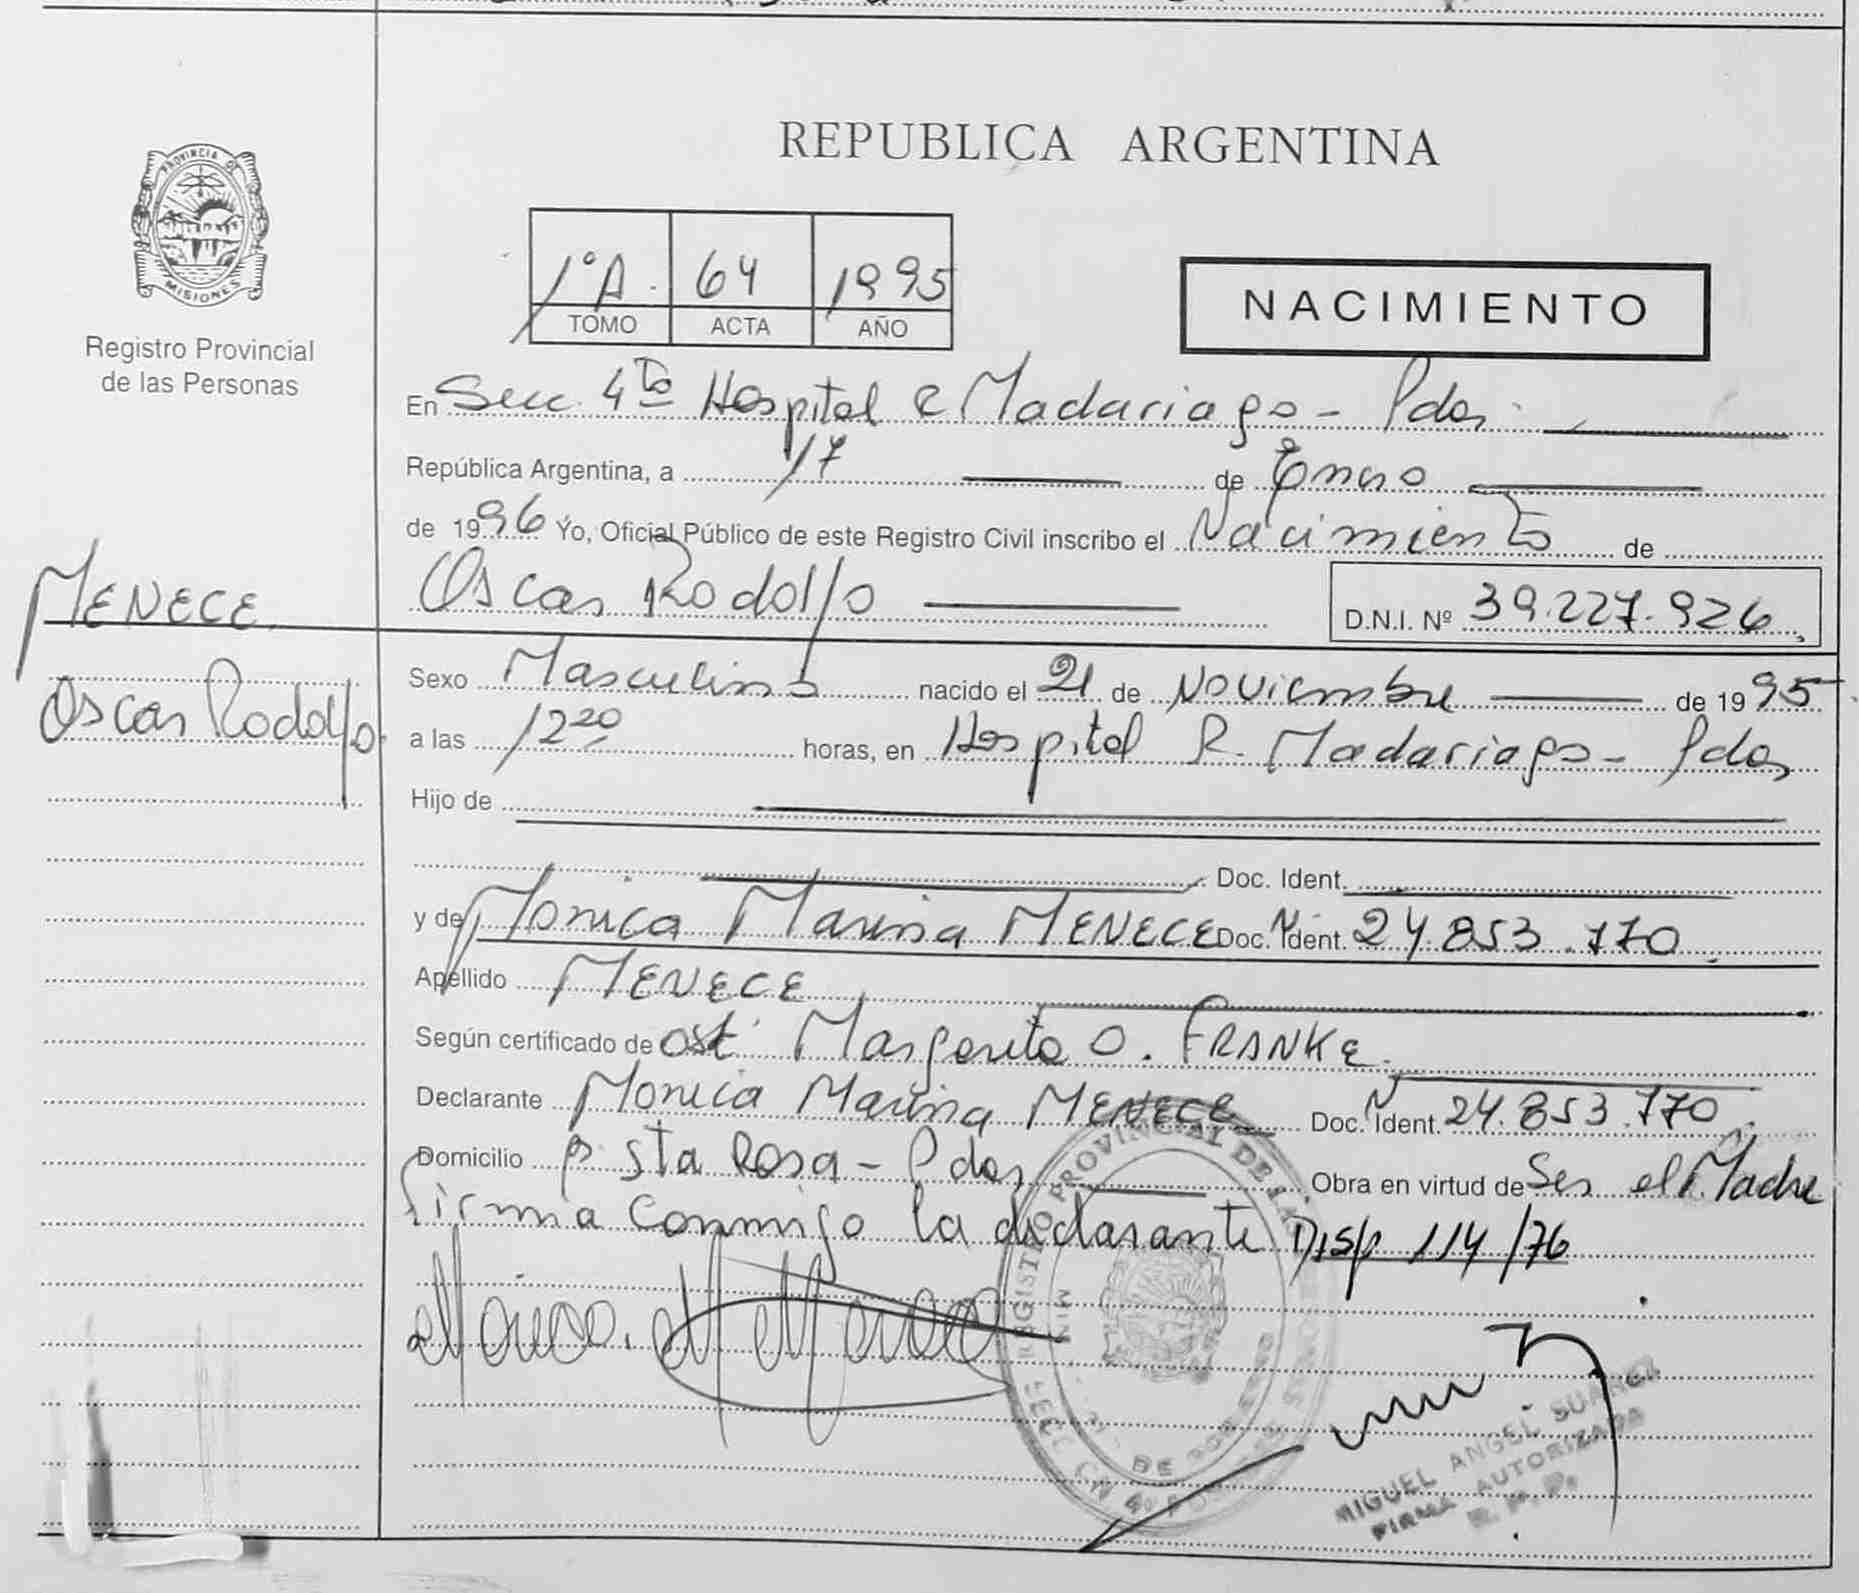 PROVINCIA DE
MISIONES
Registro Provincial
de las Personas
MENECE
Oscar Rodolfo
REPUBLICA ARGENTINA
1°A. 64 1995
TOMO ACTA AÑO
NACIMIENTO
En Secc. 4ta Hospital R Madariaga - Pdas.
República Argentina, a 17 de Enero
de 1996 Yo, Oficial Público de este Registro Civil inscribo el Nacimiento de
Oscar Rodolfo D.N.I. Nº 39.227.926
Sexo Masculino nacido el 21 de Noviembre de 1995
a las 12 20 horas, en Hospital R. Madariaga - Pdas
Hijo de
Doc. Ident.
y de Monica Marina MENECE Doc. Ident. 24.853.770
Apellido MENECE
Según certificado de Ost. Margarita O. FRANKE
Declarante Monica Marina MENECE Doc. Ident. 24.853.770
Domicilio Bº Sta Rosa - Pdas Obra en virtud de Ser el Madre
firma conmigo la declarante Disp 114/76
REGISTRO PROVINCIAL DE LAS
MIGUEL ANGEL SUAREZ
FIRMA AUTORIZADA
R. P. P.